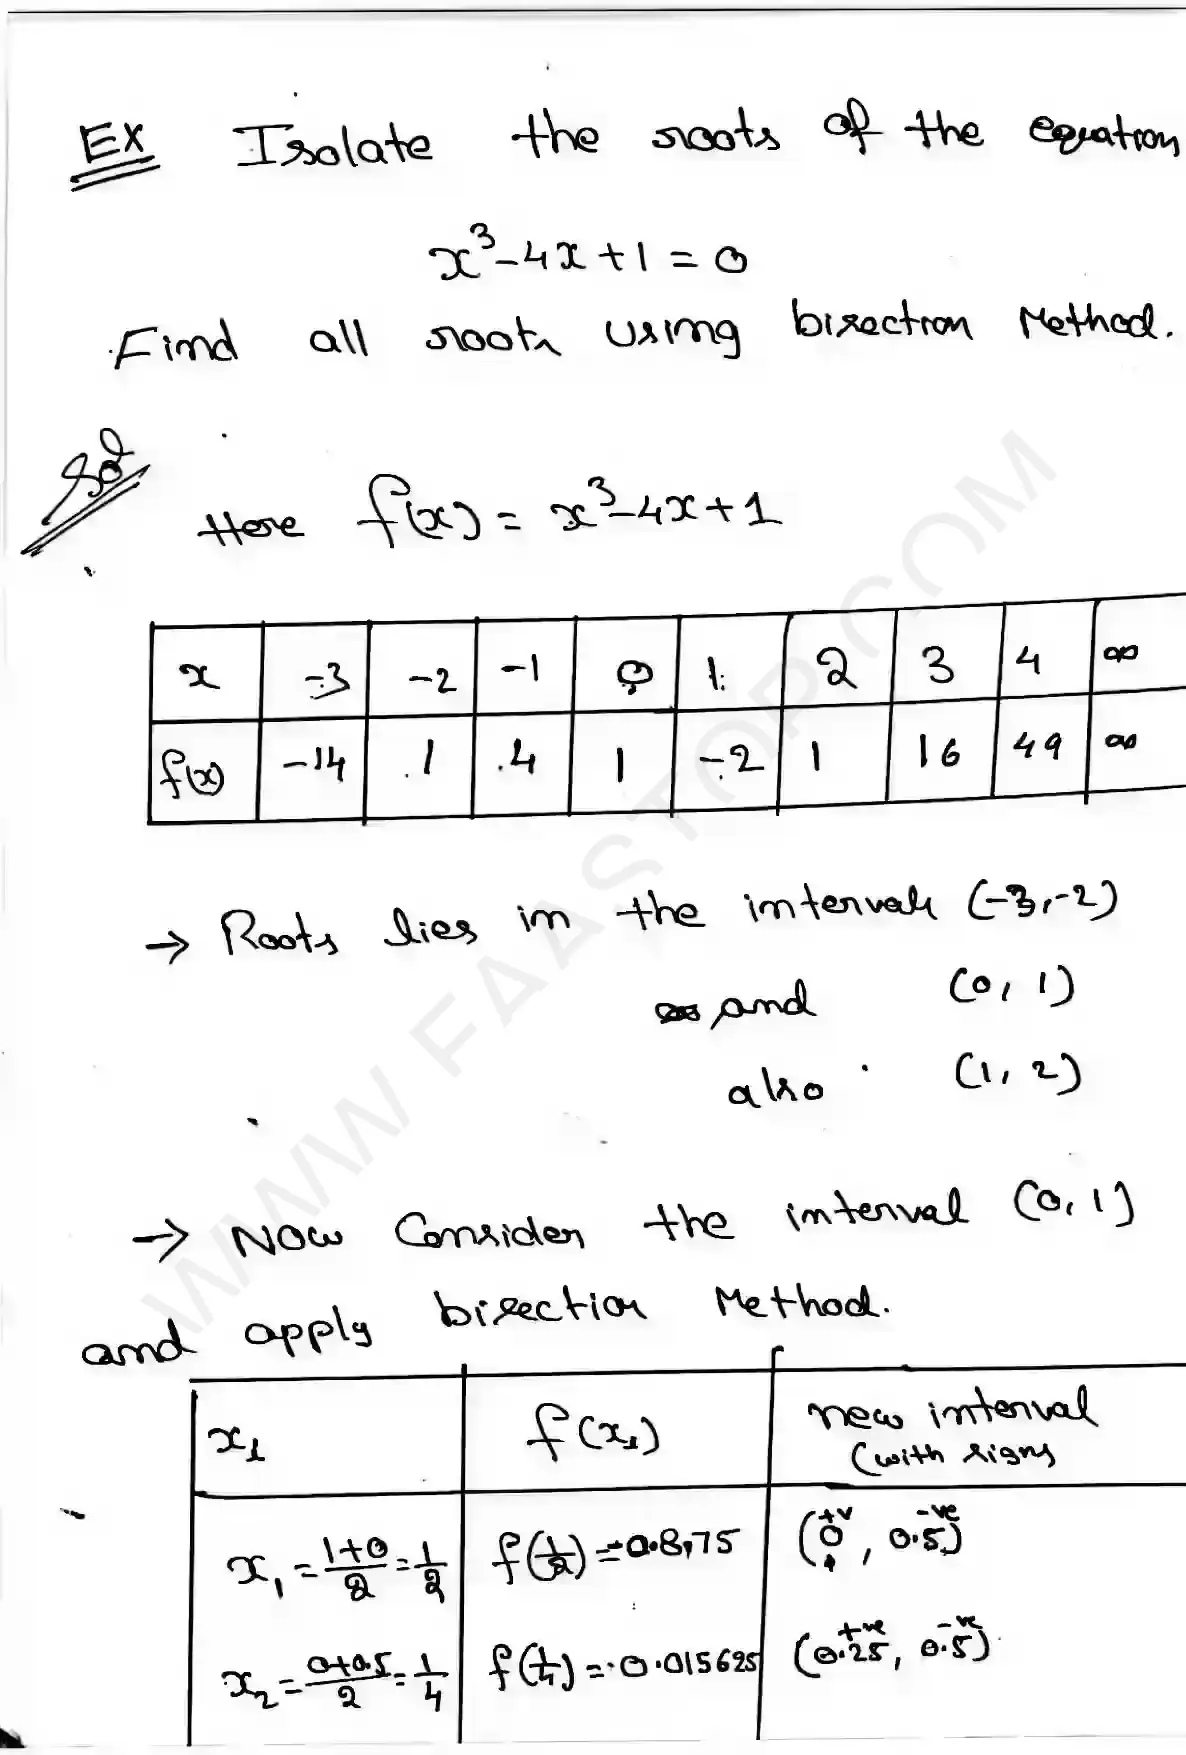 Ex Isolate the roots of the equation
x³-4x+1=0
Find all roots using bisection Method.
Sol
Here f(x) = x³-4x+1
x -3 -2 -1 0 1 2 3 4 ∞
f(x) -14 1 4 1 -2 1 16 49 ∞
→ Roots lies in the intervals (-3,-2)
and (0, 1)
also (1, 2)
→ Now Consider the interval (0,1)
and apply bisection Method.
x₁ f(x₁) new interval
(with signs
x₁ = 1+0/2 = 1/2 f(1/2) = -0.875 (0, 0.5) +v -ve
x₂ = 0+0.5/2 = 1/4 f(1/4) = 0.015625 (0.25, 0.5) +ve -ve
WWW.FAASTOP.COM